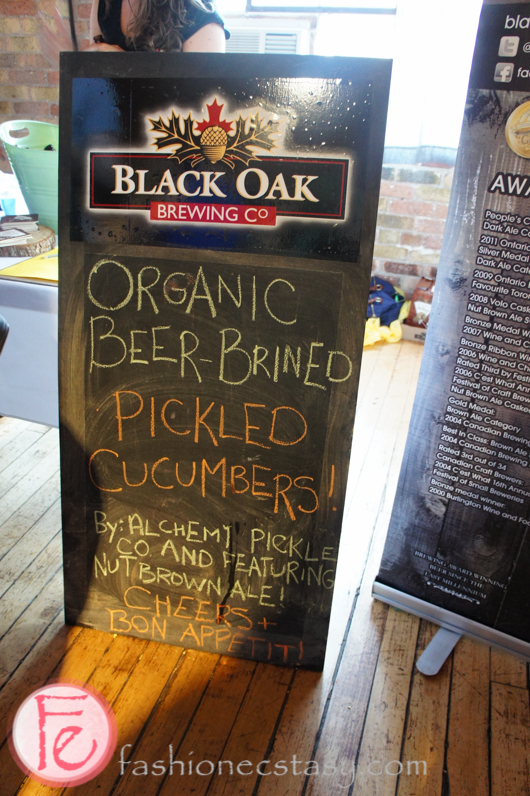 BLACK OAK
BREWING CO
ORGANIC
BEER-BRINED
PICKLED
CUCUMBERS!
BY: ALCHEMY PICKLE
CO AND FEATURING
NUTBROWN ALE!
CHEERS +
BON APPETIT!
bla
fa
AWA
People's C
Dark Ale Ca
2011 Ontario
Silver Medal
Dark Ale Cat
2009 Ontario B
Favourite Tor
2008 Volo Cask
Nut Brown Ale S
Bronze Medal
2007 Wine and C
Bronze Ribbon W
2006 Wine and Che
Rated Third by Fes
2006 C'est What A
Festival of Craft Brew
Nut Brown Ale Cass
Gold Medal:
Brown Ale Category
2004 Canadian Brew
Best in Class: Brown Ale
2004 Canadian Brewi
Rated 3rd out of 34
Canadian Craft Brewers
2004 C'est What 16th An
Festival of Small Breweries
Bronze medal winner
2000 Burlington Wine and
BREWING AWARD WINNING
BEER SINCE THE
LAST MILLENNIUM
Fe
fashionecstasy.com